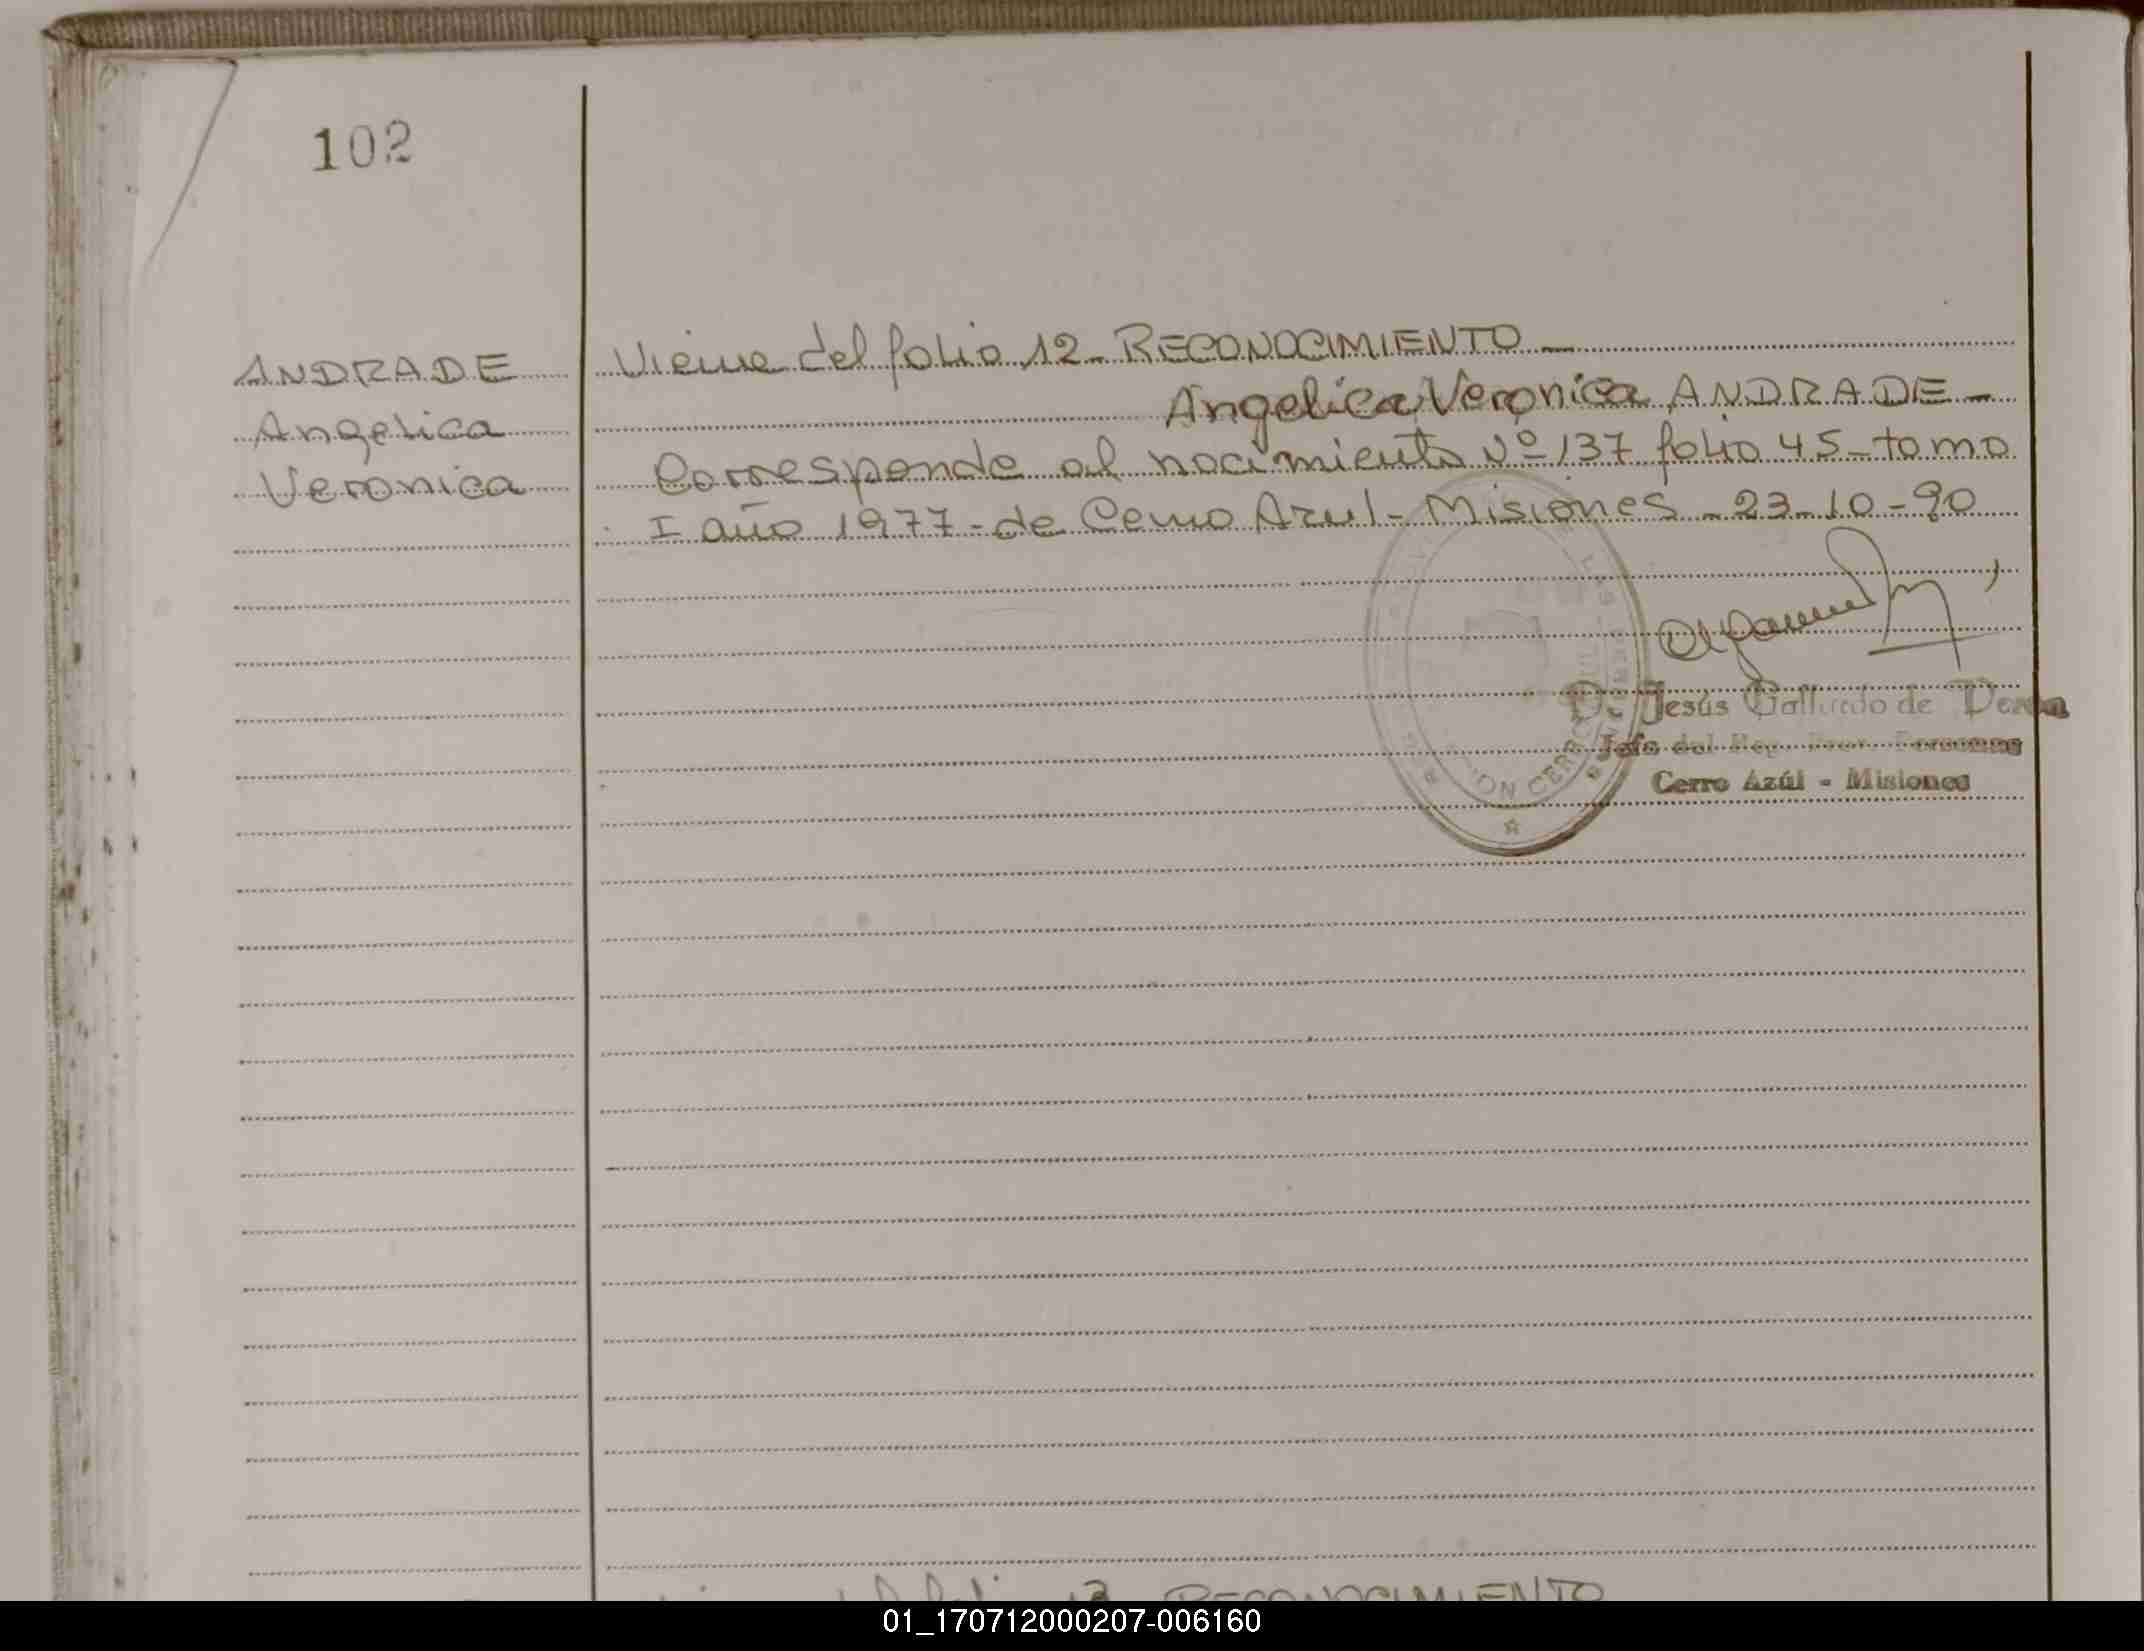 102
ANDRADE
Angelica
Veronica
Viene del folio 12 - RECONOCIMIENTO -
Angelica Veronica ANDRADE -
Corresponde al nacimiento Nº 137 folio 45 - tomo
I año 1977 - de Cerro Azul - Misiones - 23-10-90
Jesús Gallardo de
Jefe del Reg. Prov. Personas
Cerro Azúl - Misiones
RECONOCIMIENTO
01_170712000207-006160